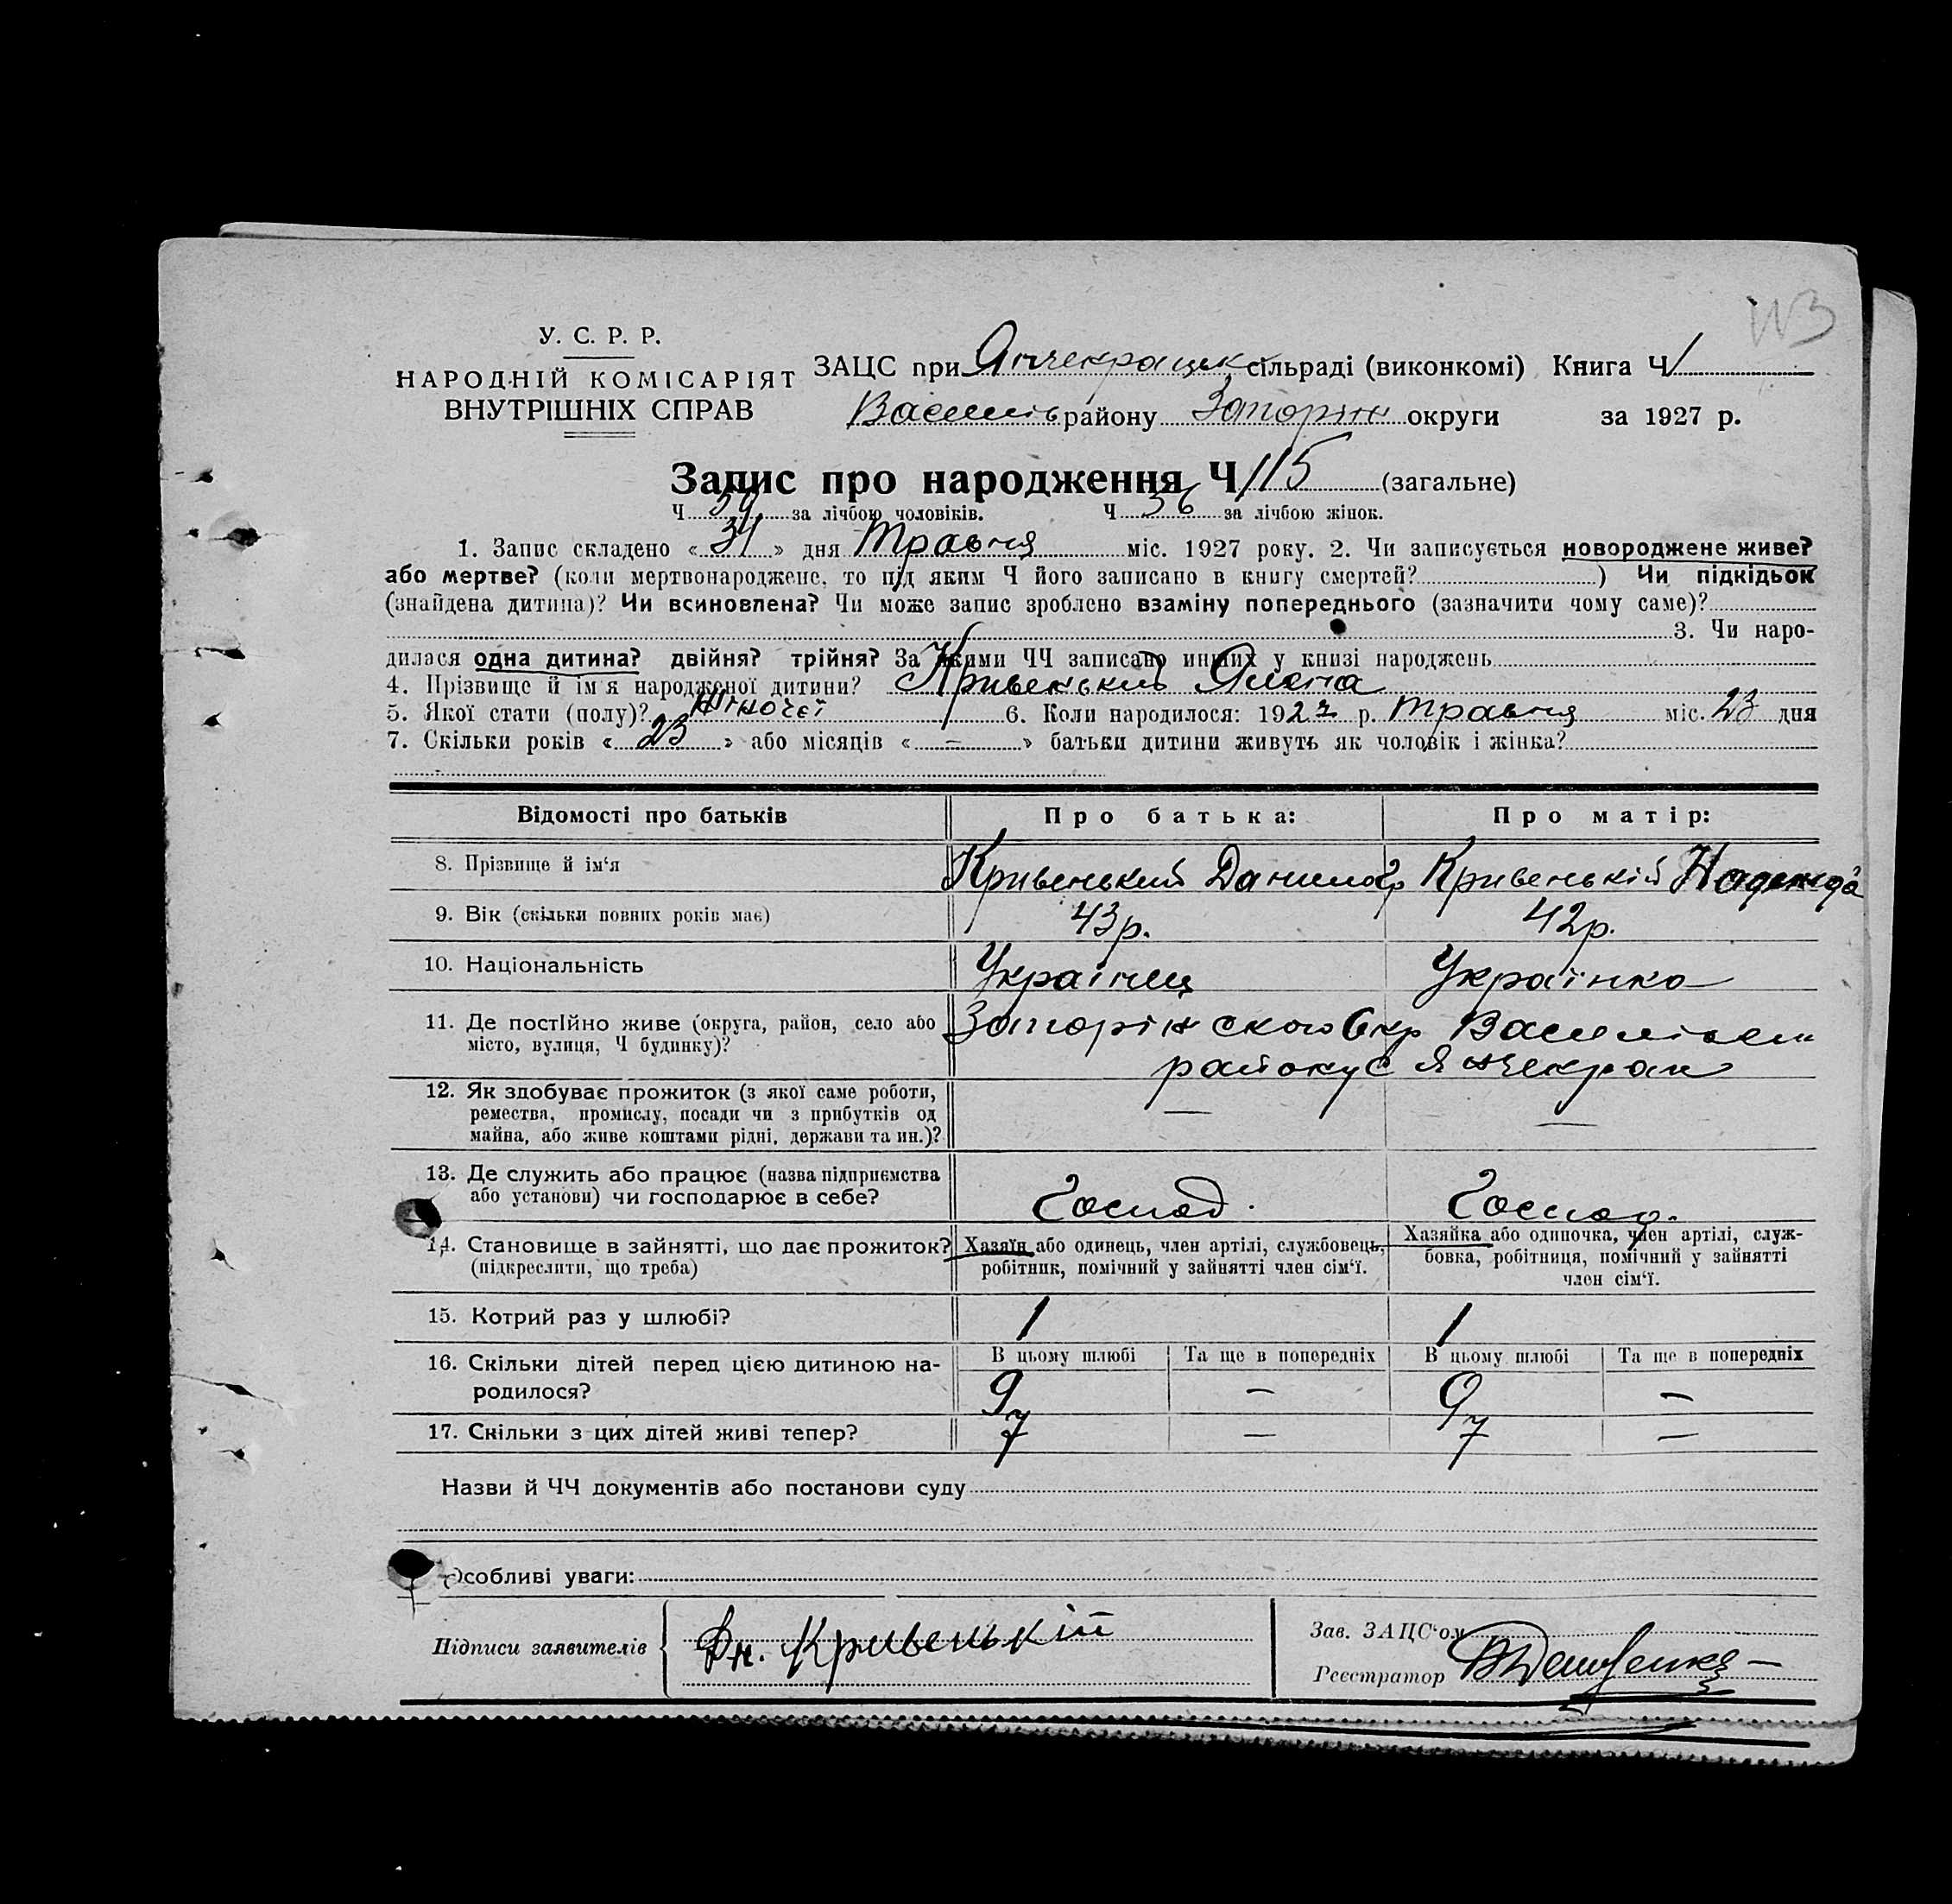 113
У. С. Р. Р.
НАРОДНІЙ КОМІСАРІЯТ
ВНУТРІШНІХ СПРАВ
ЗАЦС при Янчекрацьк сільраді (виконкомі) Книга Ч 1
Василів району Запоріж округи за 1927 р.
Запис про народження Ч 115 (загальне)
Ч 59 за лічбою чоловіків. Ч 56 за лічбою жінок.
1. Запис складено « 31 » дня Травня міс. 1927 року. 2. Чи записується новороджене живе?
або мертве? (коли мертвонароджене, то під яким Ч його записано в книгу смертей? ) Чи підкідьок
(знайдена дитина)? Чи всиновлена? Чи може запис зроблено взаміну попереднього (зазначити чому саме)?
3. Чи наро-
дилася одна дитина? двійня? трійня? За якими ЧЧ записано инших у книзі народжень
4. Прізвище й ім'я народженої дитини? Кривенький
5. Якої стати (полу)? Жіночеї 6. Коли народилося: 1927 р. Травня міс. 23 дня
7. Скільки років « 23 » або місяців « – » батьки дитини живуть як чоловік і жінка?
Відомості про батьків Про батька: Про матір:
8. Прізвище й ім'я Кривенький Данило Кривенькій Надежда
9. Вік (скільки повних років має) 43р. 42р.
10. Національність Українец Українка
11. Де постійно живе (округа, район, село або Запоріжского Окр Василівськ
місто, вулиця, Ч будинку)? району с Янчекрак
12. Як здобуває прожиток (з якої саме роботи, — —
ремества, промислу, посади чи з прибутків од
майна, або живе коштами рідні, держави та ин.)?
13. Де служить або працює (назва підприємства
або установи) чи господарює в себе? Господ. Господ.
14. Становище в зайнятті, що дає прожиток? Хазяїн або одинець, член артілі, службовець, Хазяйка або одиночка, член артілі, служ-
(підкреслити, що треба) робітник, помічний у зайнятті член сім'ї. бовка, робітниця, помічний у зайнятті
член сім'ї.
15. Котрий раз у шлюбі? 1 1
16. Скільки дітей перед цією дитиною на- В цьому шлюбі Та ще в попередніх В цьому шлюбі Та ще в попередніх
родилося? 9 – 9 –
17. Скільки з цих дітей живі тепер? 7 – 7 –
Назви й ЧЧ документів або постанови суду
Особливі уваги:
Підписи заявителів Дн. Кривенькій
Зав. ЗАЦС'ом
Реєстратор